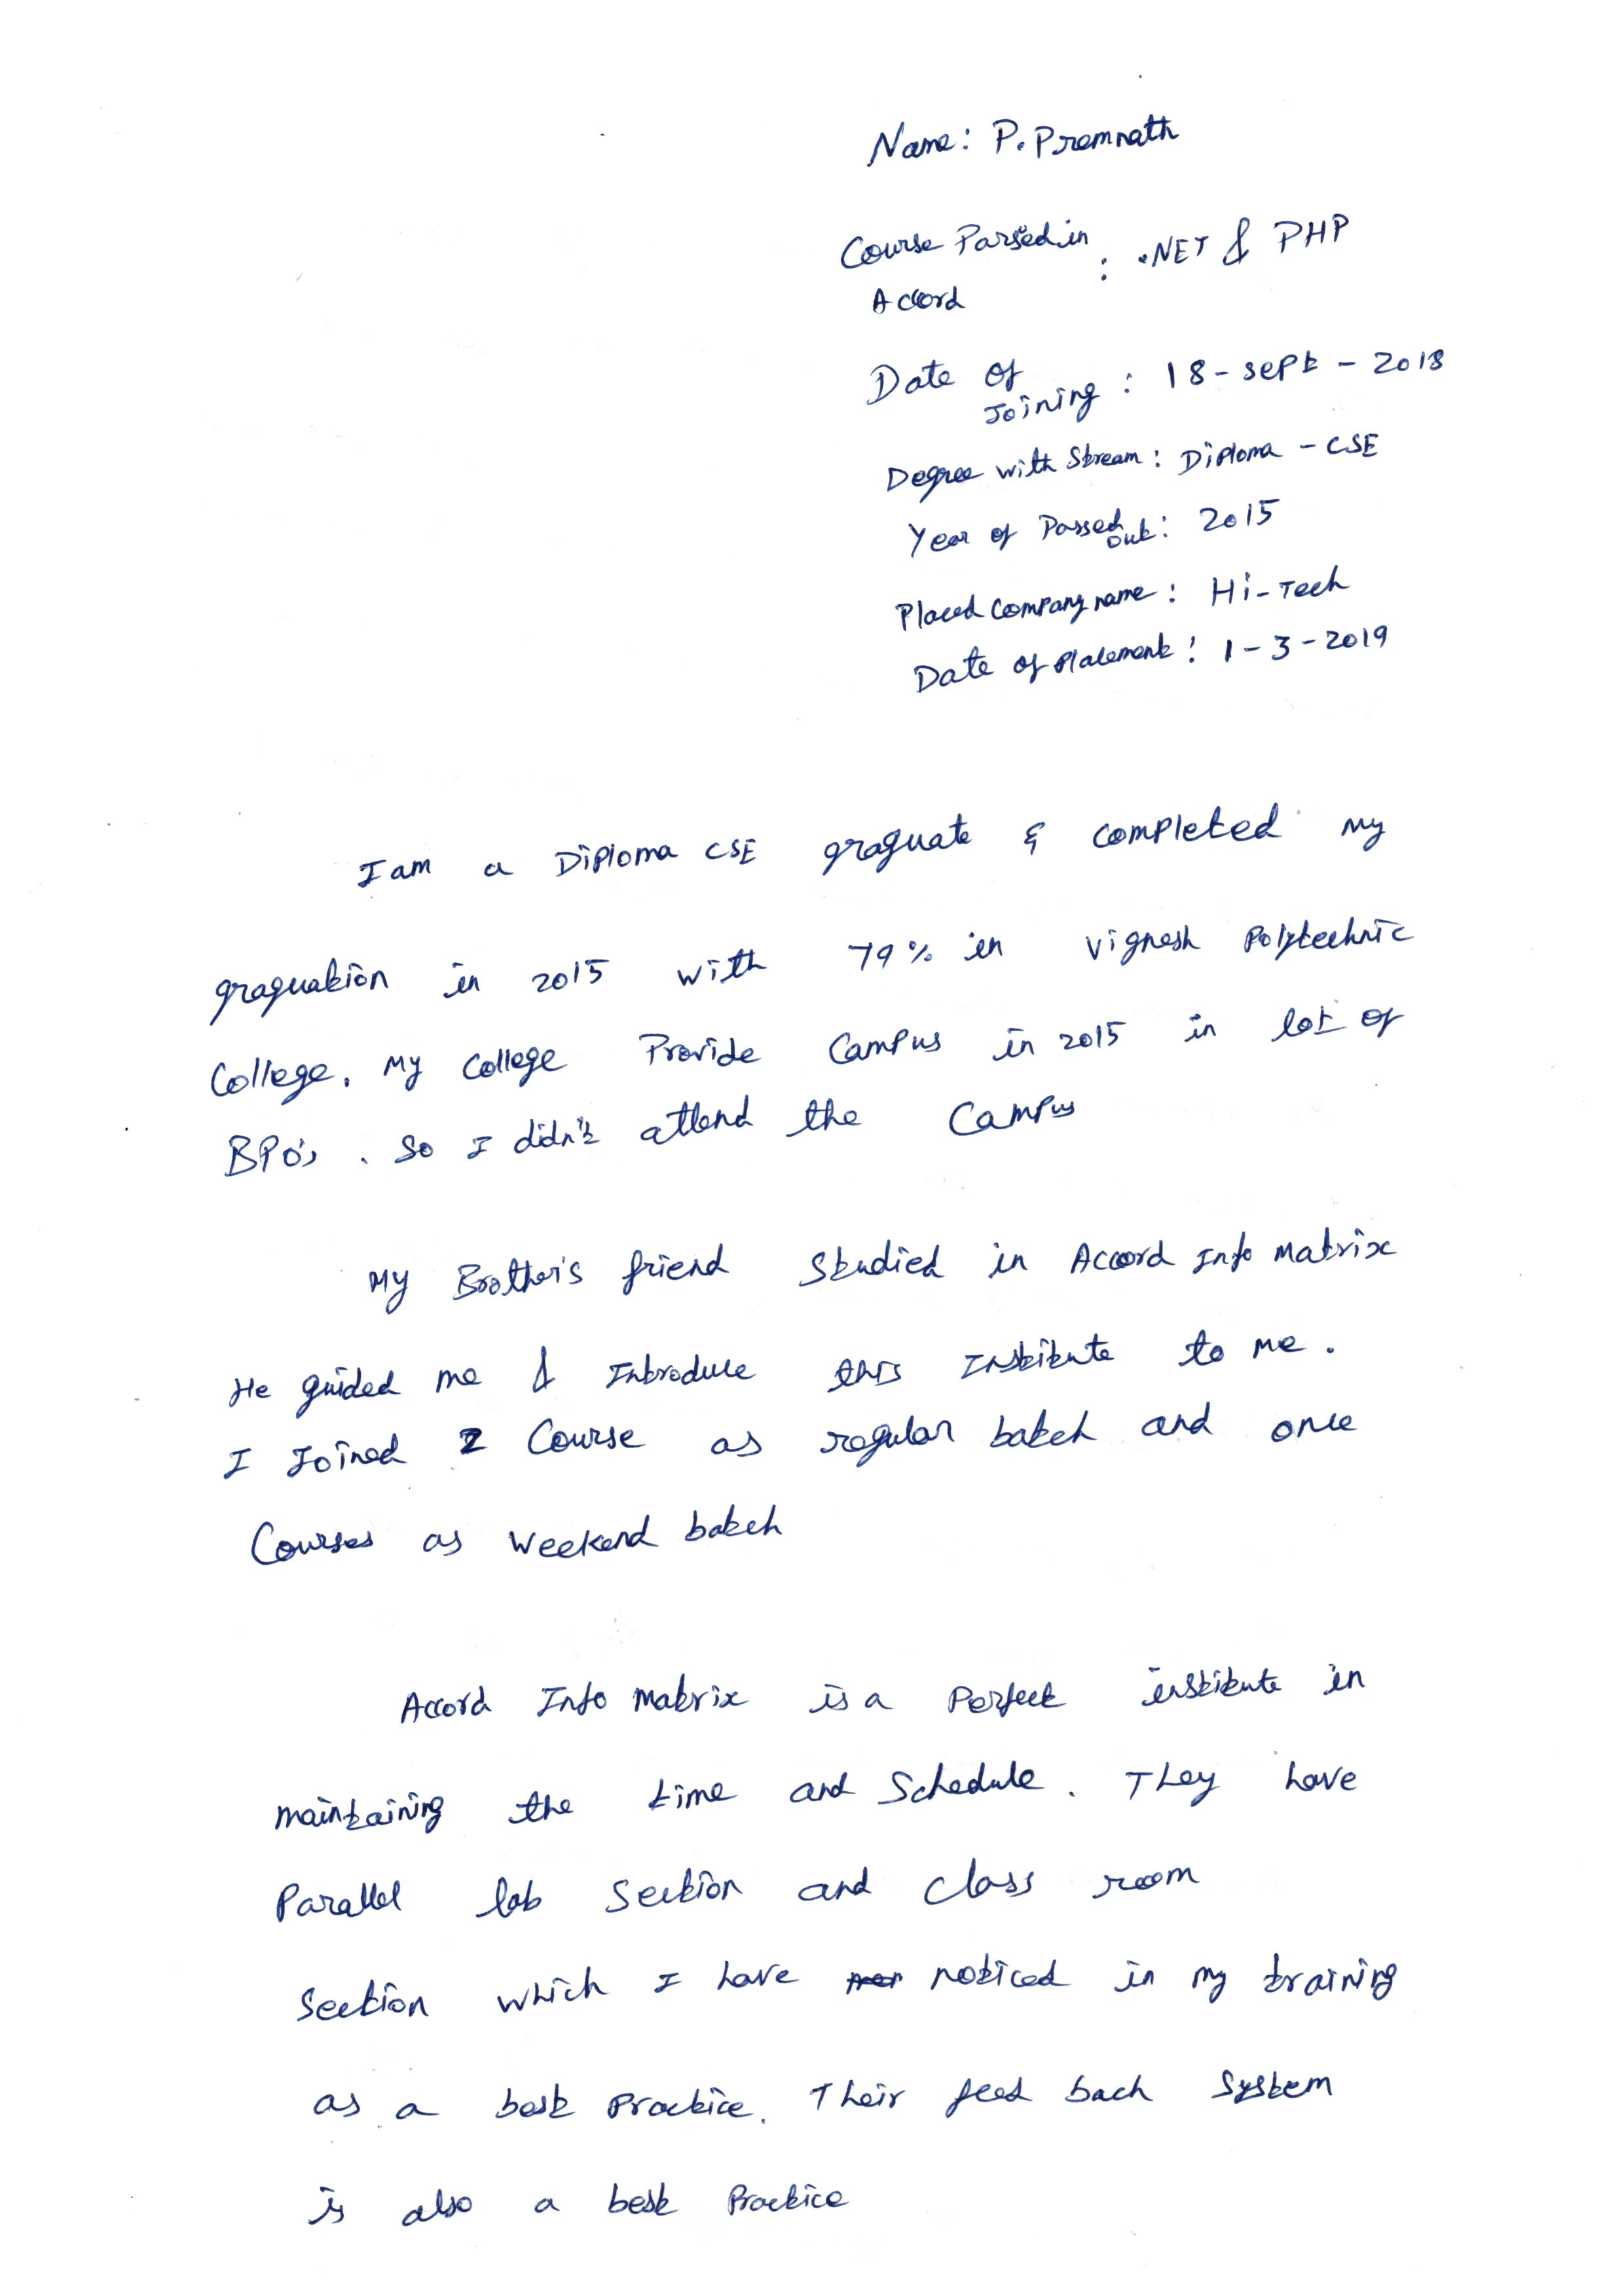 Name: P. Premnath
Course Parsed in : .NET & PHP
Accord
Date of Joining : 18-sept-2018
Degree with Stream : Diploma - CSE
Year of Passed out : 2015
Placed Company name : Hi-Tech
Date of placement : 1-3-2019
I am a Diploma CSE graguate & completed my
graguation in 2015 with 79% in Vignesh Polytechnic
College. My College Provide Campus in 2015 in lot of
BPO's. So I didn't attend the Campus
My Brother's friend Studied in Accord Info matrix
He guided me & Introduce this Institute to me.
I Joined 2 Course as regular batch and once
Courses as Weekend batch
Accord Info matrix is a Perfect institute in
maintaining the time and Schedule. They have
Parallel lab Section and class room
Section which I have noticed in my training
as a best Practice. Their feed back System
is also a best Practice